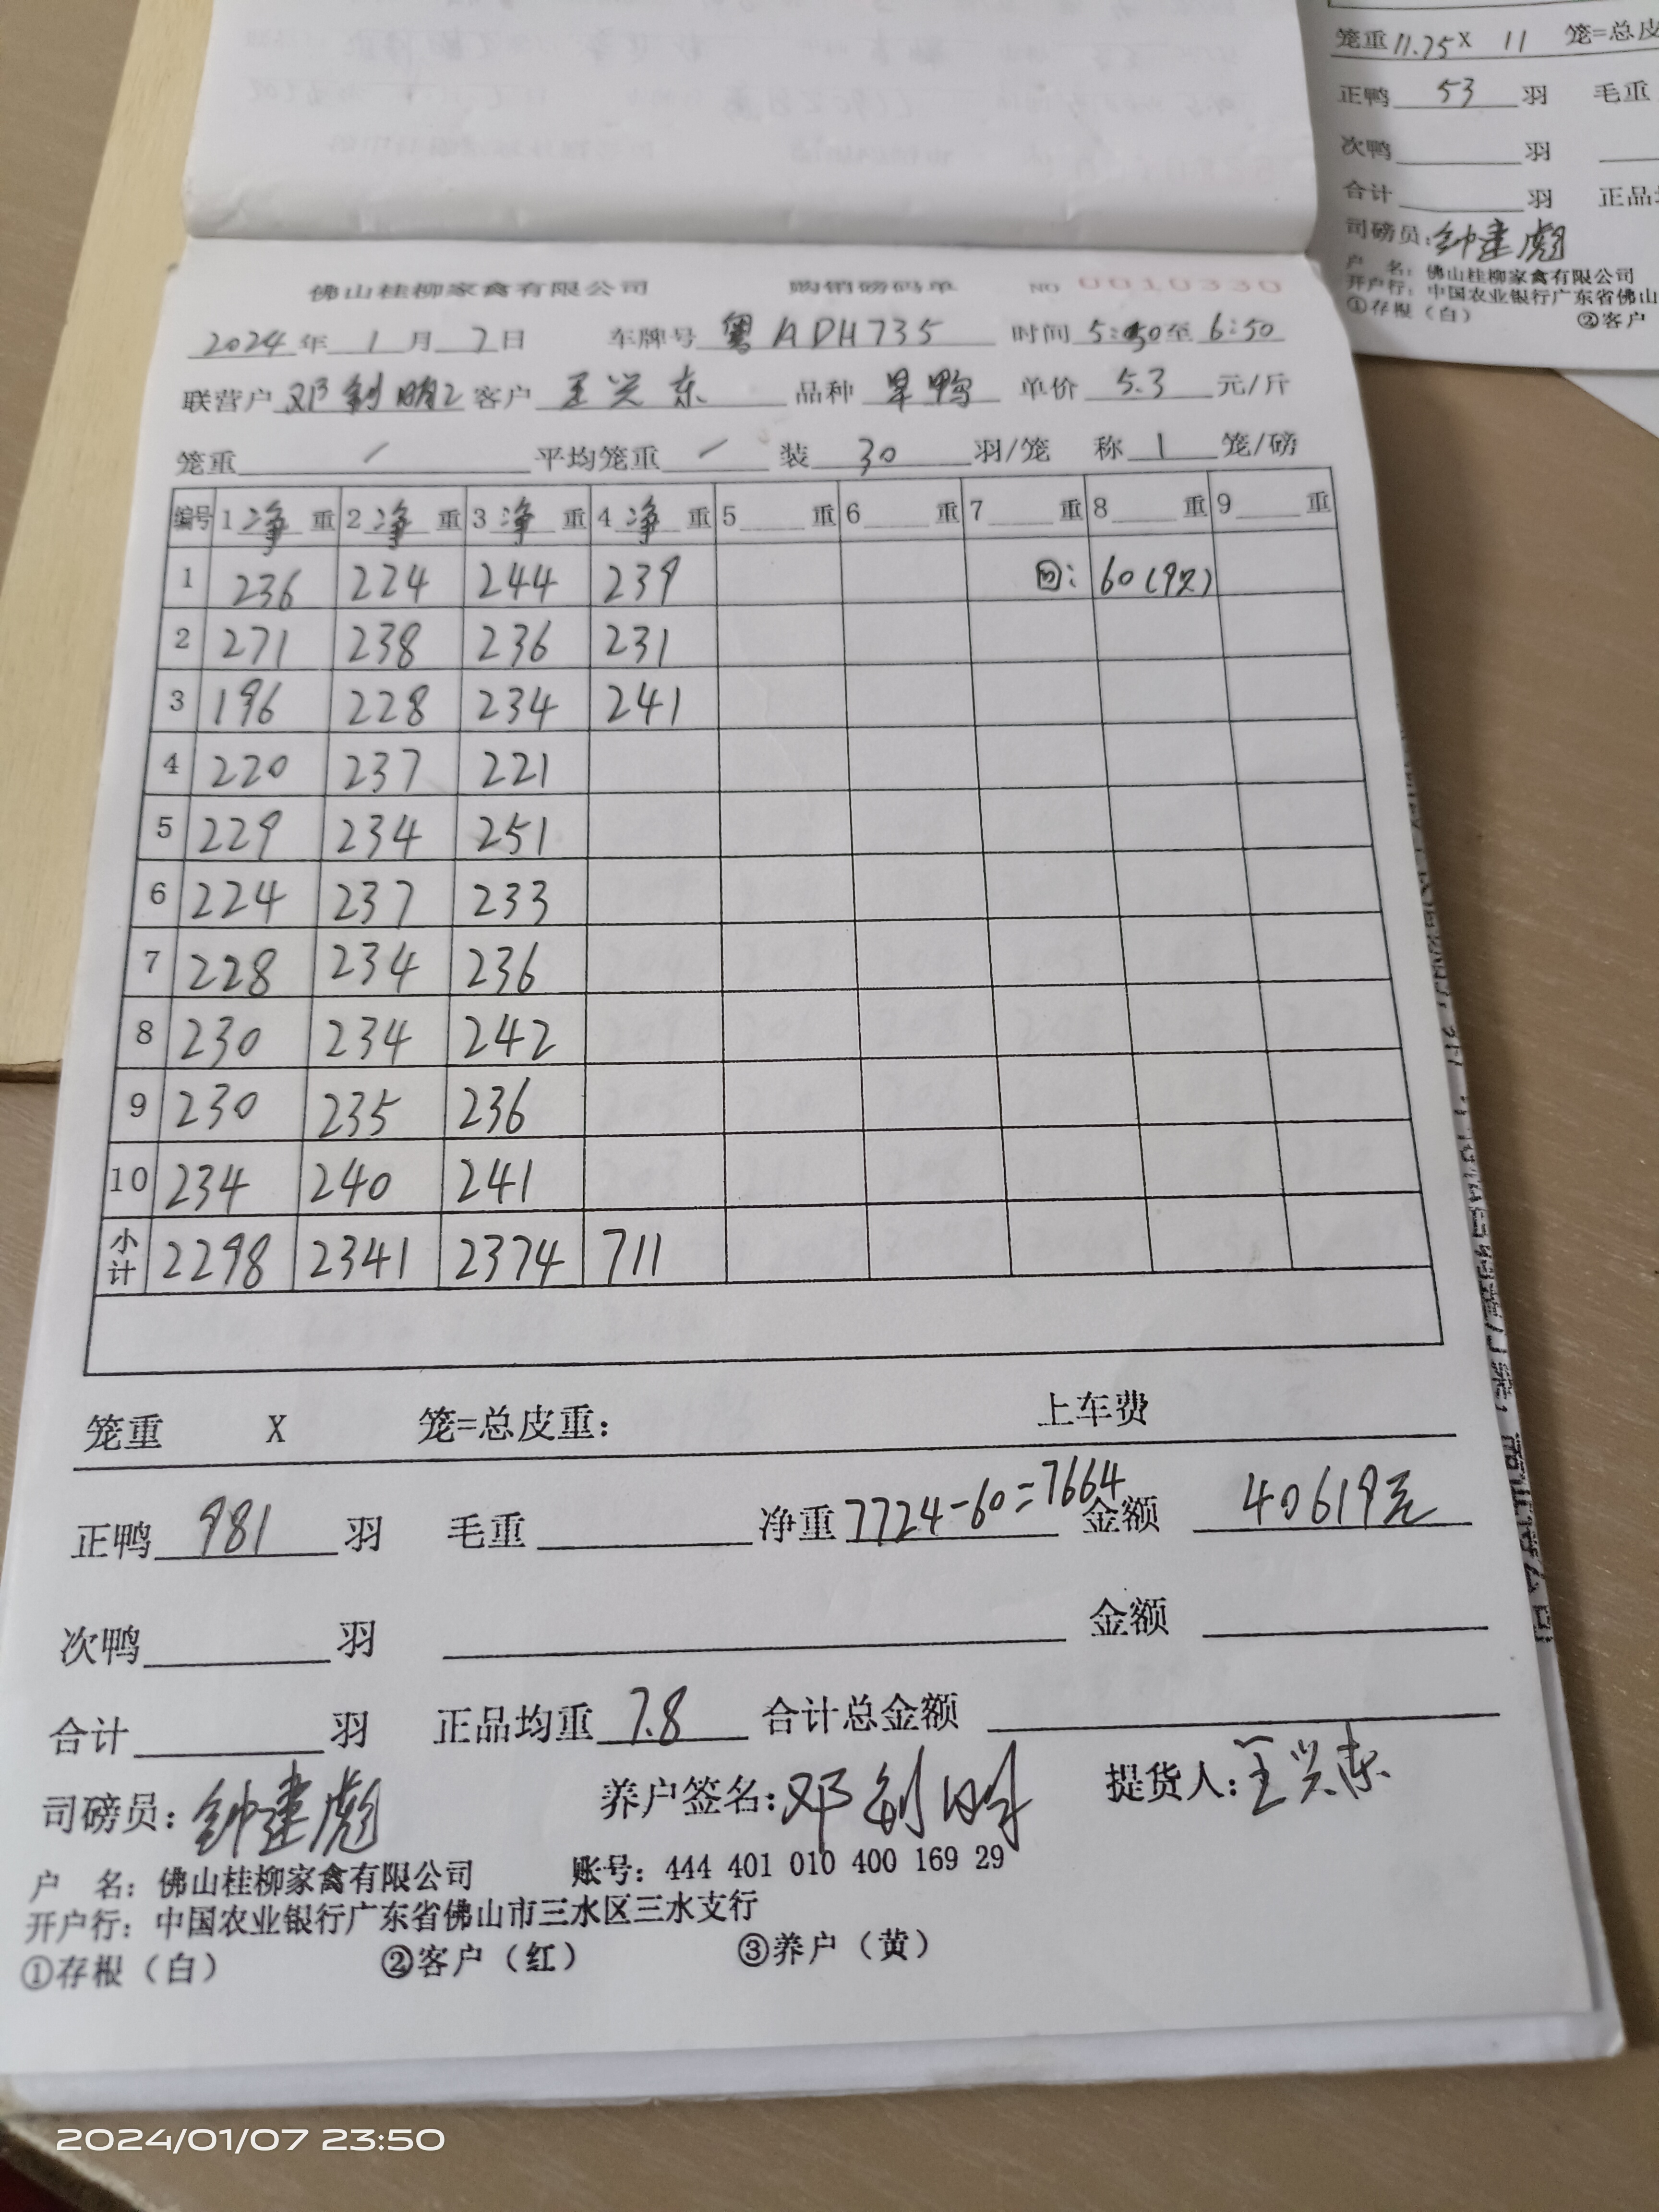 笼重 11.75 X 11 笼=总皮
正鸭 53 羽 毛重
次鸭 羽
合计 羽 正品
司磅员: 钟建彪
户 名: 佛山桂柳家禽有限公司
开户行: 中国农业银行广东省佛山
①存根（白） ②客户
佛山桂柳家禽有限公司 购销磅码单 NO 0010330
2024 年 1 月 7 日 车牌号 粤ADH735 时间 5:30 至 6:50
联营户 邓剑明2 客户 王兴东 品种 旱鸭 单价 5.3 元/斤
笼重 / 平均笼重 / 装 30 羽/笼 称 1 笼/磅
编号 1 净 重 2 净 重 3 净 重 4 净 重 5 重 6 重 7 重 8 重 9 重
1 236 224 244 239 回: 60(9只)
2 271 238 236 231
3 196 228 234 241
4 220 237 221
5 229 234 251
6 224 237 233
7 228 234 236
8 230 234 242
9 230 235 236
10 234 240 241
小计 2298 2341 2374 711
笼重 X 笼=总皮重: 上车费
正鸭 981 羽 毛重 净重 7724-60=7664 金额 40619元
次鸭 羽 金额
合计 羽 正品均重 7.8 合计总金额
司磅员: 钟建彪 养户签名: 邓剑明 提货人: 王兴东
户 名: 佛山桂柳家禽有限公司 账号: 444 401 010 400 169 29
开户行: 中国农业银行广东省佛山市三水区三水支行
①存根（白） ②客户（红） ③养户（黄）
2024/01/07 23:50